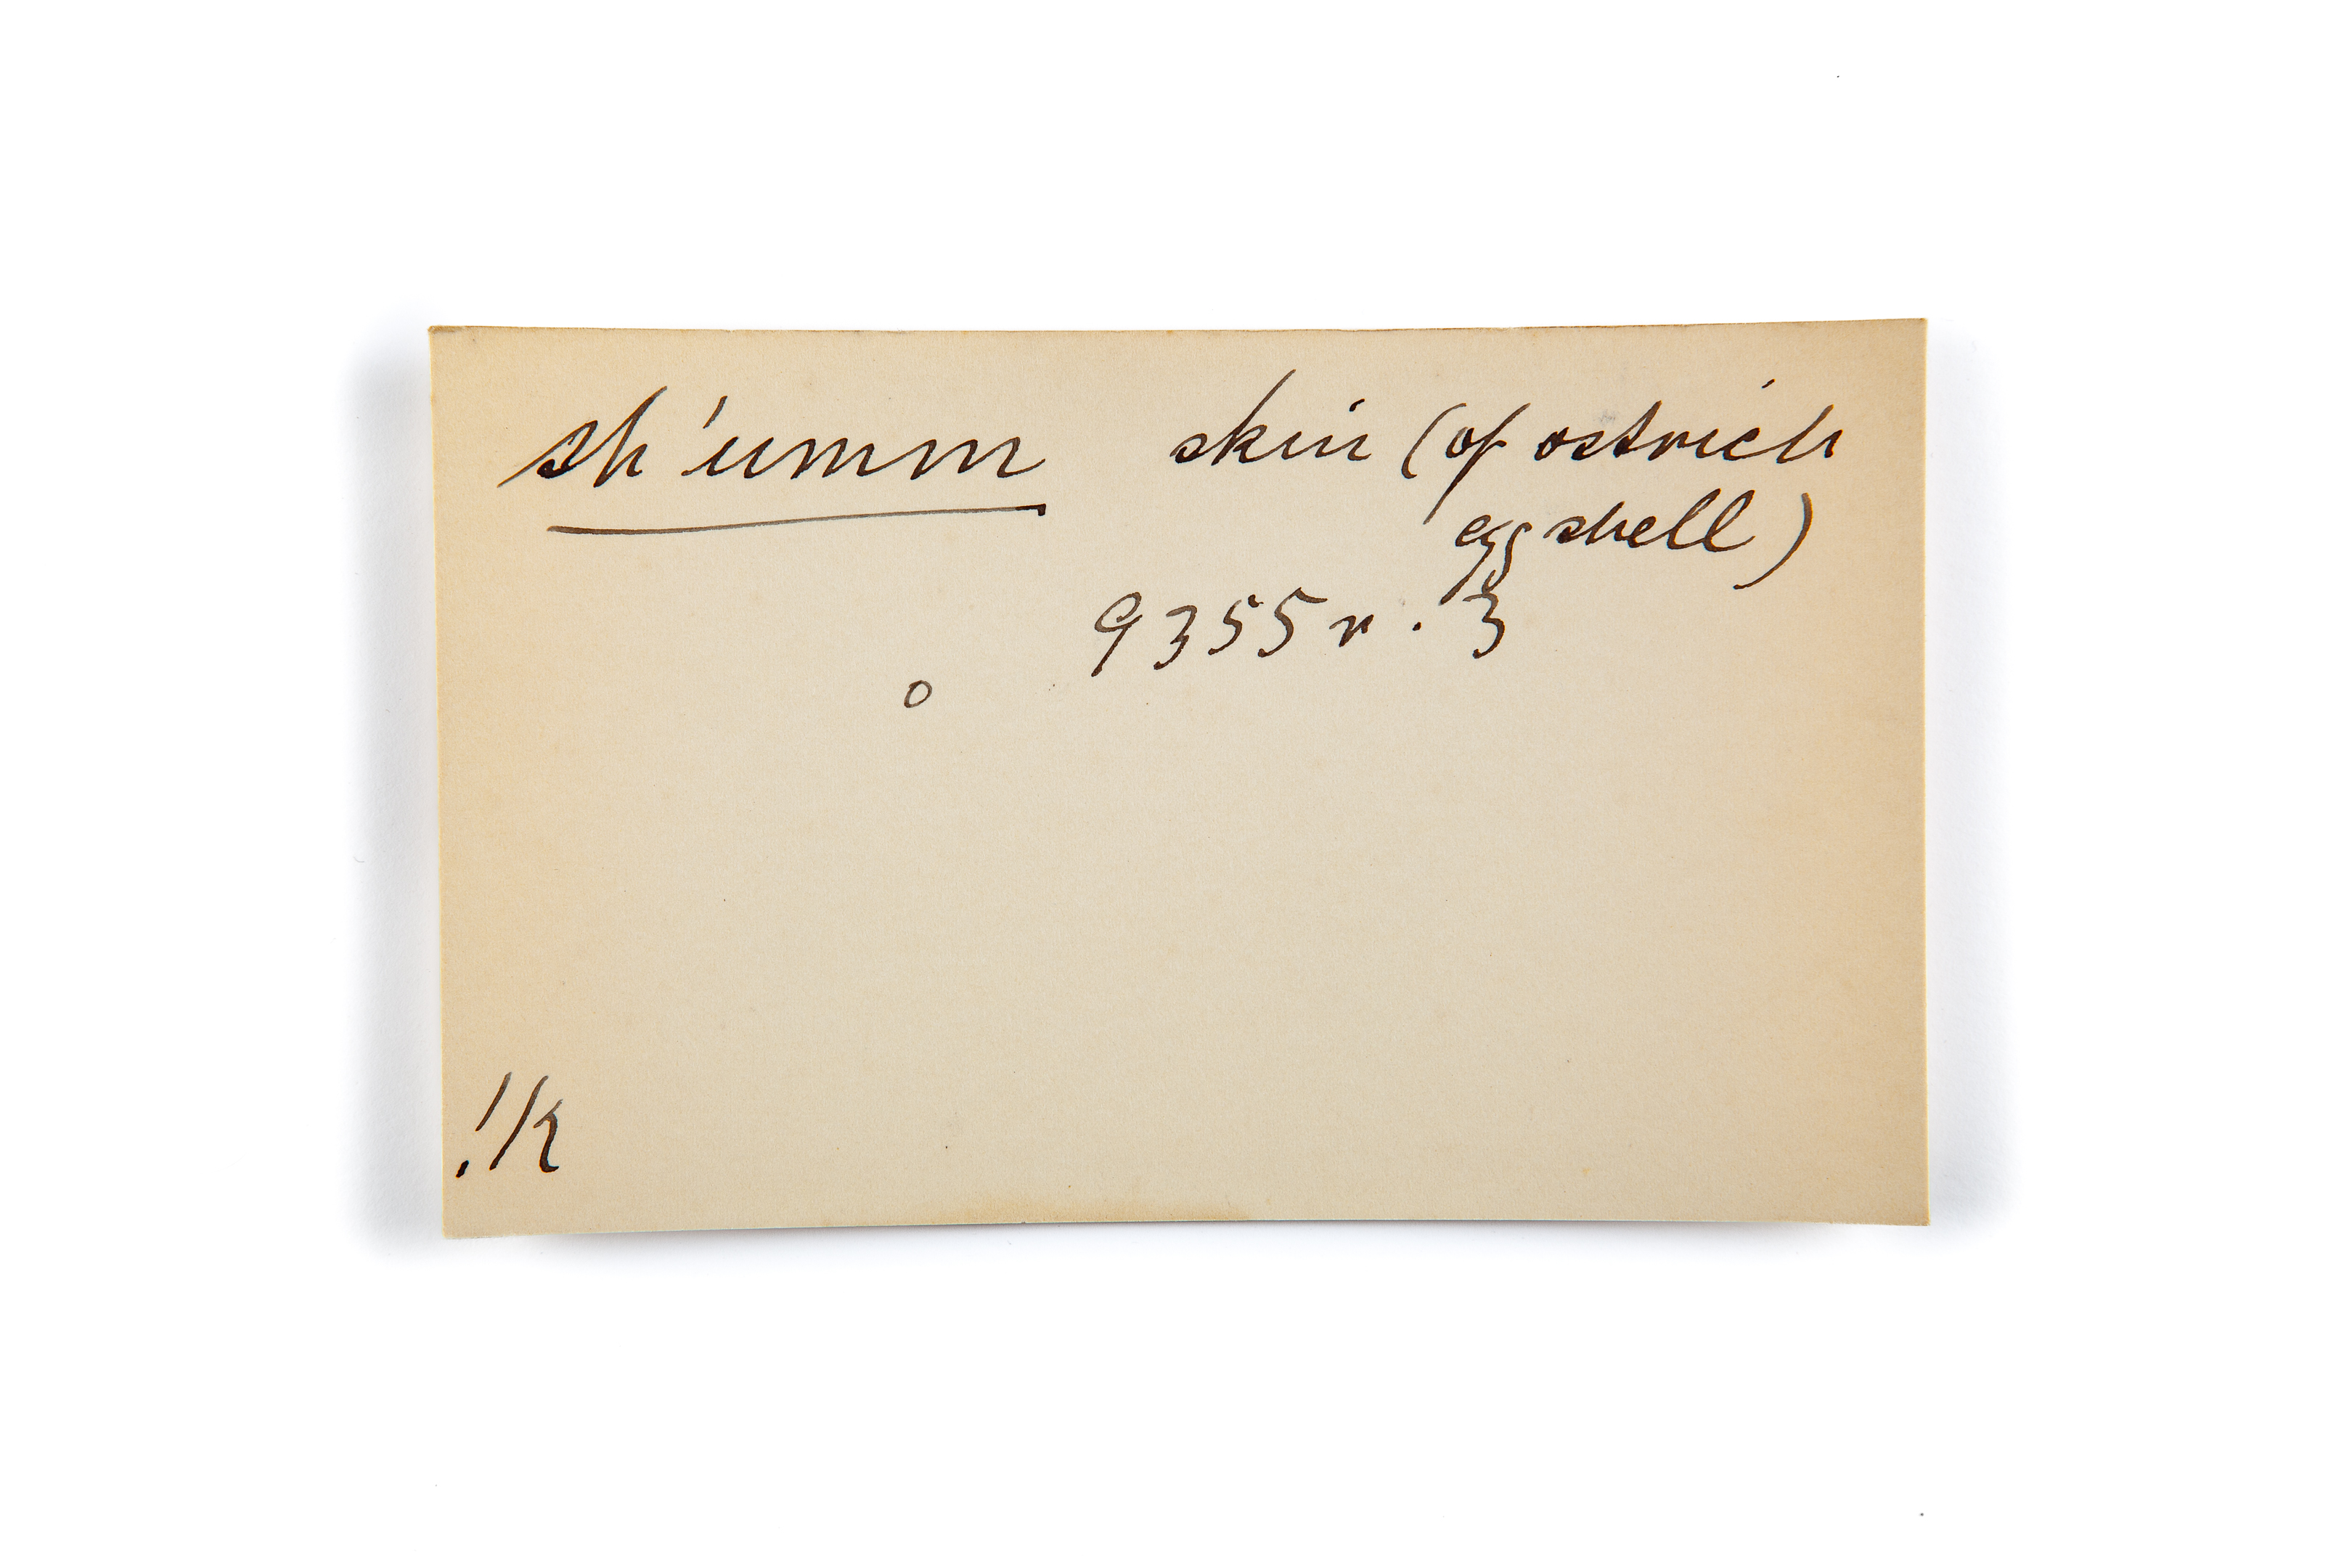 sh'umm skin (of ostrich
egg shell)
9355 r. 3
o
!k